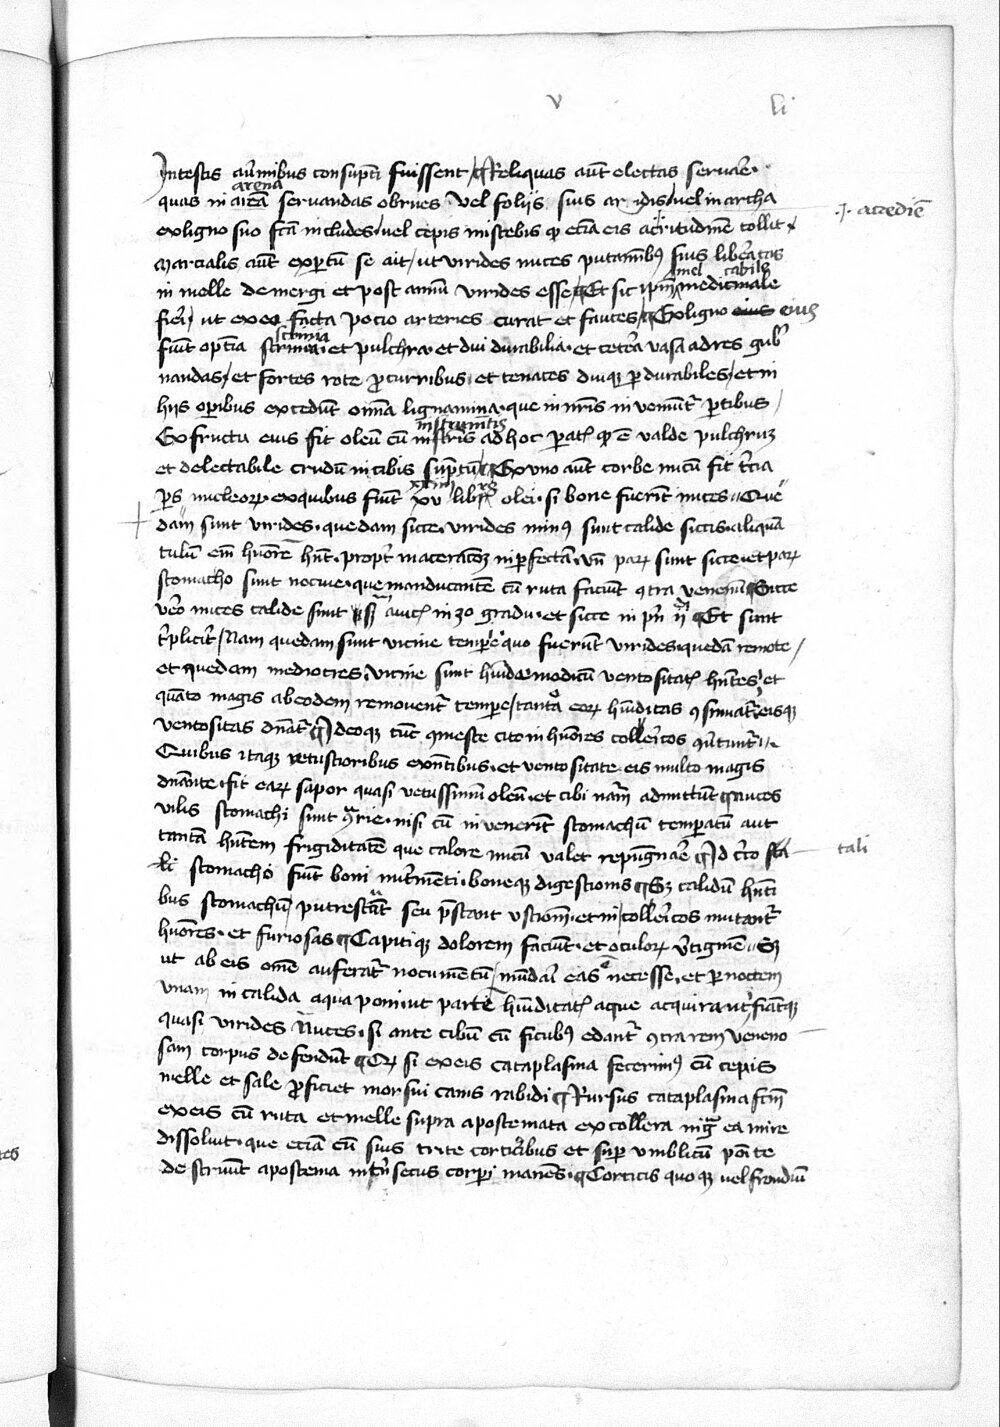 v li
Intestis aũmibus consupti fuissent ¶ Reliquas aũt electas servare.
arena
quas in area servandas obrues vel foliis suis aridis / vel in archa
·|· acredinẽ
ex ligno suo fcã includes / vel cepis miscebis qz eciã eis acritudinẽ tollit
Marcialis aũt expertũ se ait / ut virides nuces putaminibꝰ suis liberatas
mel cabile
in melle demergi et post annũ virides esse ¶ Et sic ipm medicinale
fieri / ut ex eo facta pocio arteries curat et fauces ¶ Ex ligno eius eius
scrinia
fiunt optima scrinea et pulchra et diu durabilia et cetera vasa ad res gub
nandas / et fortes rote pro curribus et tenaces diuqz perdurabiles / et in
hiis operibus excedũt omnia lignamina que in nris inveniũtur partibus /
instrumẽtis
Ex fructu eius fit oleũ cũ instris ad hoc paratis qz est valde pulchrum
et delectabile crudũ in cibis suptũ ¶ Ex uno aũt corbe nucũ fit tercia
pars nucleorz ex quibus fiunt xv libre olei si bone fuerint nuces Que
dam sunt virides quedam sicce virides minꝰ sunt calide siccis aliquã
tulũ enim humorẽ hñt propter maceracõem inperfectam un parz sunt sicce et parz
stomacho sunt nocive que manducante cũ ruta faciũt contra venenũ ¶ Sicce
vero nuces calide sunt in 3o gradu et sicce in Et sunt
tripliciter / Nam quedam sunt vicine tempore quo fuerũt virides quedã remote /
et quedam mediocres vicine sunt humide modicũ ventositatis hñtes et
quãto magis ab eodem removentur tempore / tanto earz humiditas consumatur eisqz
ventositas dñatur ¶ Ideoqz tũc comeste cito in humores collericos convertuntur
Quibus itaqz vetustioribus existentibus et ventositate eis multo magis
dñante fit earz sapor quasi vetustissimũ oleũ et cibi naturam admittunt ¶ Nuces
vilis stomachi sunt contrarie nisi cũ invenerint stomachũ temperatũ aut
tali
tantã hñtem frigiditatẽ que calore nucũ valet repugnare ¶ Id circo sta
li stomacho fiũt boni nutrimenti boneqz digestionis ¶ Sz calidũ hñti
bus stomachũ / putrescunt seu prestant ustionem et in / collericos mutantur
humores et furiosas ¶ Capitiqz dolorem faciũt et oculorz vertiginẽ Sz
ut ab eis omne auferatur nocumentũ / mundari eas necesse est et per noctem
unam in calida aqua poni ut partẽ humiditatis aque acquirant fiantqz
quasi virides Nuces si ante cibũ cũ ficubꝰ edantur contra rem veneno
sam corpus defendũt ¶ Qz si ex eis cataplasma fecerimꝰ cũ cepis
melle et sale proficiet morsui canis rabidi ¶ Rursus cataplasma fcm
ex eis cũ ruta et melle supra apostemata ex collera nigra ea mire
dissolvit que eciã cũ suis trite corticibus et super umblicũ posite
destruũt apostema intrinsecus corpori manens ¶ Corticis quoqz vel frondium